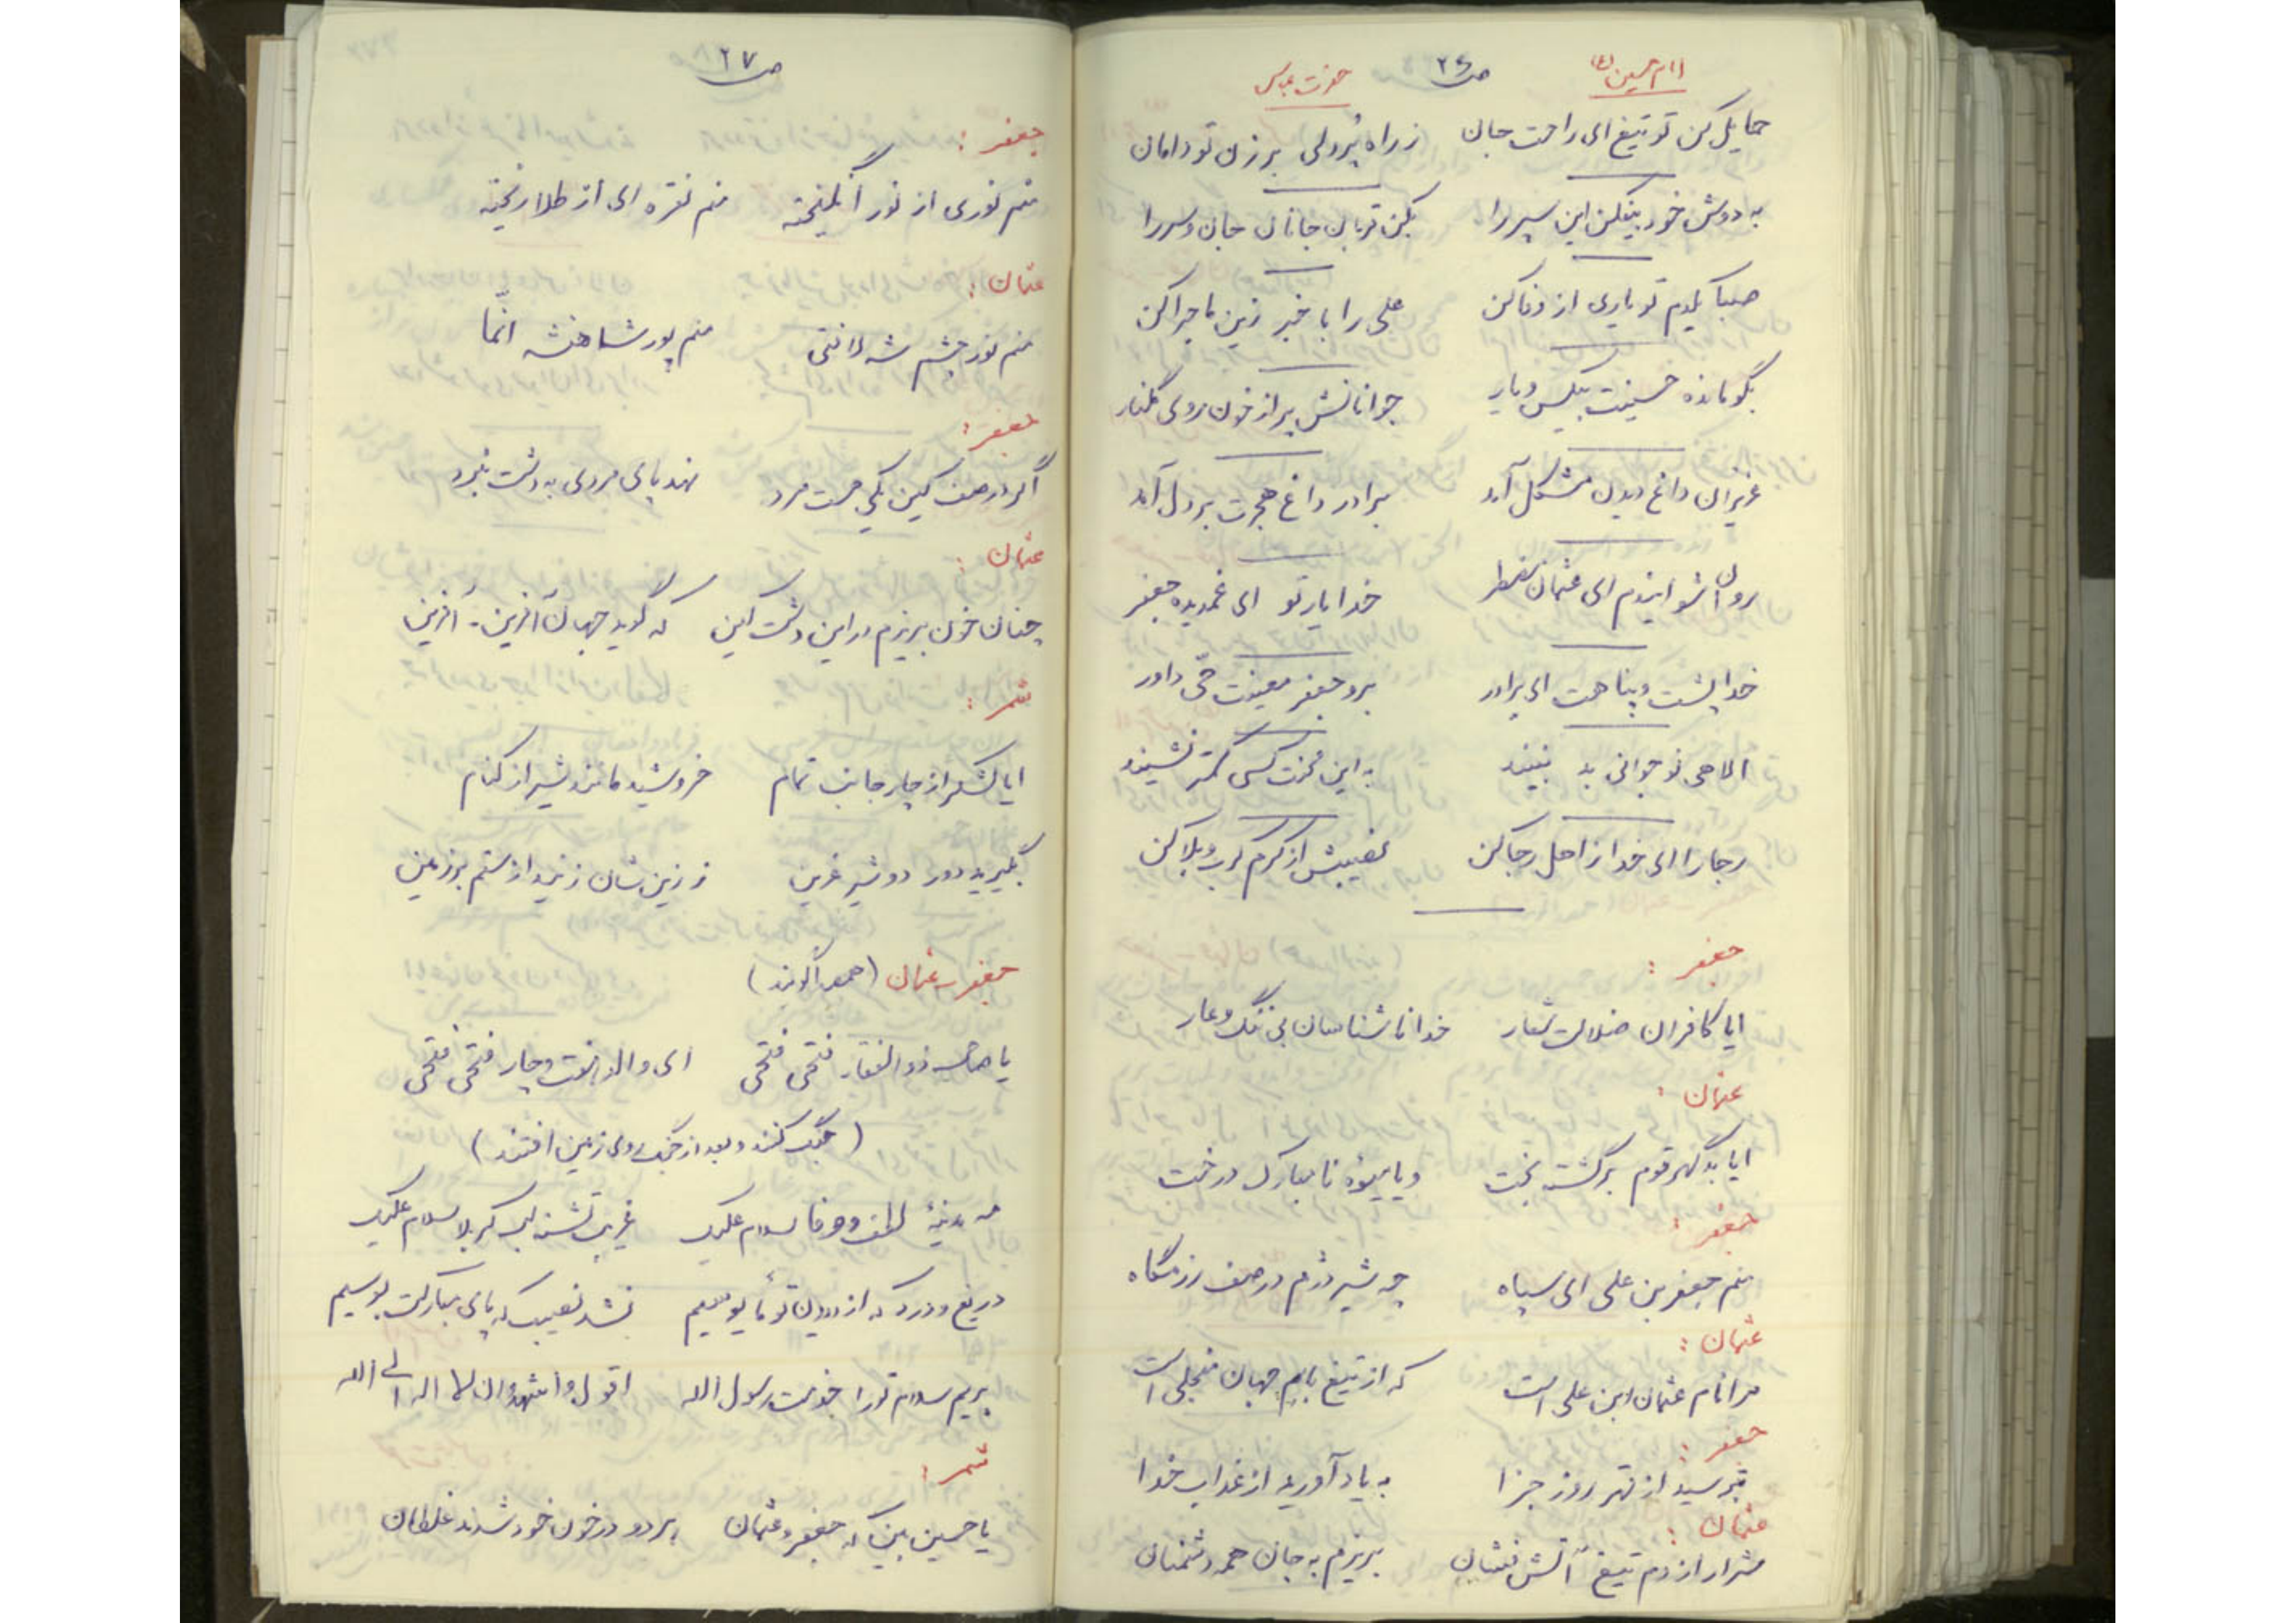 امام حسین (ع) ص ۲۶ حضرت عباس
حمایل کن تو تیغ ای راحت جان ز راه پُردلی برزن تو دامان
به دوش خود بیفکن این سپر را بکن قربان جانان جان و سر را
صبا یکدم تو یاری از وفا کن علی را با خبر زین ماجرا کن
بگو مانده حسینت بیکس و یار جوانانش پر از خون روی گلنار
عزیزان داغ دیدن مشکل آمد برادر داغ هجرت بر دل آمد
روان شو ایندم ای عثمان مضطر خدا یار تو ای غمدیده جعفر
خدا پشت و پناهت ای برادر برو جعفر معینت حی داور
الاهی نوجوانی بد نبیند به این محنت کسی کمتر نشیند
رجا را ای خدا از اهل رجا کن نصیبش از کرم کرب و بلا کن
جعفر :
ایا کافران ضلالت شعار خدا ناشناسان بی ننگ و عار
عثمان :
ایا بد گهر قوم برگشته بخت و یا میوهٔ نا مبارک درخت
جعفر :
منم جعفر بن علی ای سپاه چه شیر دژم در صف رزمگاه
عثمان :
مرا نام عثمان ابن علی است که از تیغ بابم جهان منجلی است
جعفر :
بترسید از قهر روز جزا به یاد آورید از عذاب خدا
عثمان :
شرار از دم تیغ آتش فشان بریزم به جان همه دشمنان
ص ۲۷
جعفر :
منم نوری از نور انگیخته منم نقره ای از طلا ریخته
عثمان :
منم نور چشم شه لافتی منم پور شاهنشه انّما
جعفر :
اگر در صف کین یکی هست مرد نهد پای مردی به دشت نبرد
عثمان :
چنان خون بریزم در این دشت کین که گوید جهان آفرین - آفرین
شمر :
ایا لشکر از چار جانب تمام خروشید مانند شیر از کنام
بگیرید دور دو شیر غرین ز زین شان زنید از ستم بر زمین
جعفر - عثمان (همصدا گویند)
یا صاحب ذوالفقار فتحی فتحی ای والد هفت و چار فتحی فتحی
(جنگ کنند و بعد از جنگ روی زمین افتند)
مه مدینهٔ لطف و وفا سلام علیک غریب تشنه لب کربلا سلام علیک
دریغ و درد که از دیدن تو مأیوسیم نشد نصیب که پای مبارکت بوسیم
بریم سلام تو را خدمت رسول الله اقول و اشهد ان لا اله الی الله
شمر :
یا حسین بین که جعفر و عثمان هر دو در خون خود شدند غلطان